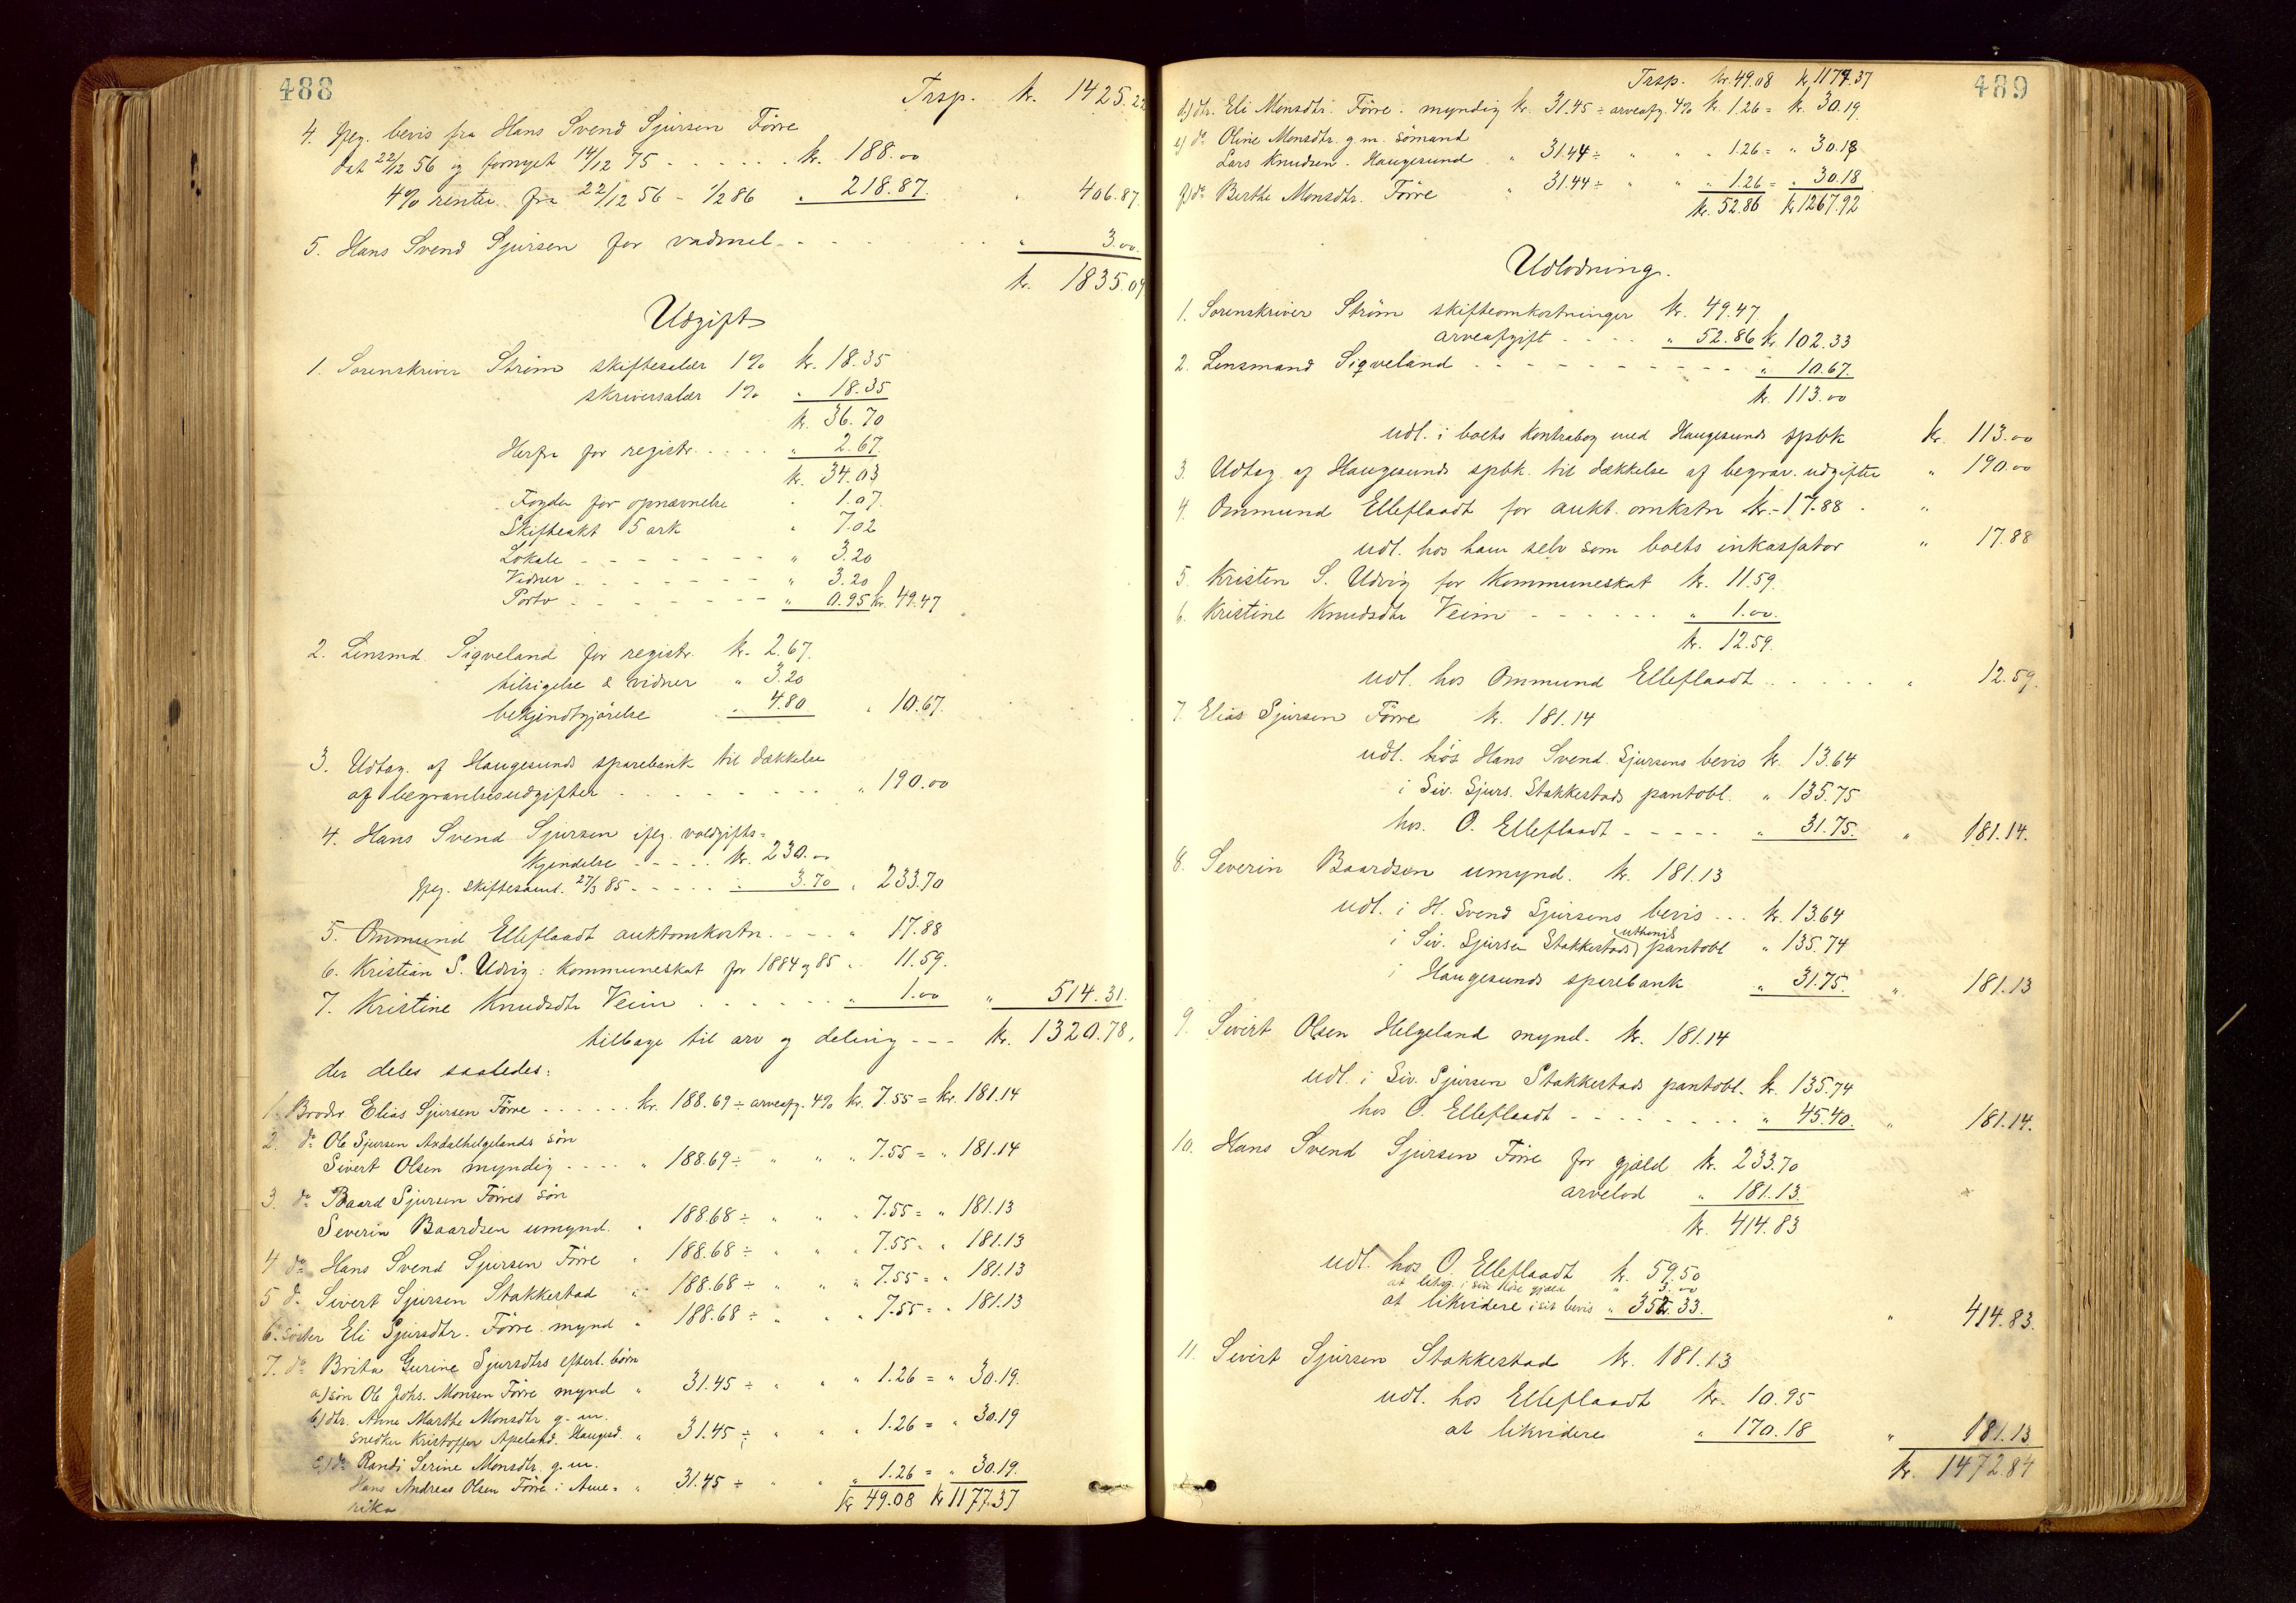 488
Trsp. kr. 1425.22
4. Ifølg. bevis fra Hans Svend Sjursen Førre
dat 22/12 56 og fornyet 14/12 75 - - - - - - kr. 188.00
4% renter fra 22/12 56 - 1/2 86 " 218.87. " 406.87.
5. Hans Svend Sjursen for vadmel - - - - - " 3.00.
kr. 1835.09
Udgift
1. Sorenskriver Strøm skiftesalær 1% kr. 18.35
skriversalær 1% " 18.35
kr. 36.70
Herfra for registr. . . . . " 2.67.
kr. 34.03
Fogden for opnævnelse " 1.07.
Skifteakt 5 ark " 7.02
Lokale - - - - - - - " 3.20
Vidner - - - - - - - " 3.20
Porto - - - - - - - " 0.95 kr. 49.47
2. Lensmd. Sigveland for registr. kr. 2.67.
tilsigelse & vidner " 3.20
bekjendtgjørelse " 4.80 " 10.67.
3. Udtag. af Haugesunds sparebank til dækkelse
af begravelsesudgifter - - - - - - - " 190.00
4. Hans Svend Sjursen iflg. voldgifts=
kjendelse - - - - - kr. 230.00
Iflg. skiftesaml. 27/3 85 - - - - - " 3.70 " 233.70
5. Ommund Elleflaadt auktomkostn. - - - " 17.88
6. Kristian S. Udvig: Kommuneskat for 1884 og 85 " 11.59.
7. Kristine Knudsdtr Veim - - - - - - " 1.00 " 514.31.
tilbage til arv og deling - - - kr. 1320.78.
der deles saaledes:
1. Broder Elias Sjursen Førre - - - - - kr. 188.69 ÷ arveafg. 4% kr. 7.55 = kr. 181.14
2. do Ole Sjursen Axdalhelgelands søn
Sivert Olsen myndig - - - - " 188.69 ÷ " " " 7.55 = " 181.14
3. do Baard Sjursen Førres søn
Severin Baardsen umynd. " 188.68 ÷ " " " 7.55 = " 181.13
4 do Hans Svend Sjursen Førre " 188.68 ÷ " " " 7.55 = " 181.13
5 do Sivert Sjursen Stakkestad " 188.68 ÷ " " " 7.55 = " 181.13
6. søster Eli Sjursdtr. Førre mynd " 188.68 ÷ " " " 7.55 = " 181.13
7. do Brita Gurine Sjursdtrs efterl. børn
a) søn Ole Johs. Monsen Førre mynd " 31.45 ÷ " " " 1.26 = " 30.19.
b) dtr. Anne Marthe Monsdtr g. m.
snedker Kristoffer Apeland. Haugesd. " 31.45 ÷ " " " 1.26 = " 30.19
c) do Randi Serine Monsdtr. g. m.
Hans Andreas Olsen Førre i Ame= " 31.45 ÷ " " " 1.26 = " 30.19.
rika kr 49.08 kr 1177.37
489
Trsp. kr. 49.08 kr 1177.37
d) dtr. Eli Monsdtr. Førre. myndig kr. 31.45 ÷ arveafg. 4% kr. 1.26 = kr. 30.19.
e) do Oline Monsdtr. g. m. sømand
Lars Knudsen. Haugesund " 31.44 ÷ " " " 1.26 = " 30.18
f) do Berthe Monsdtr. Førre " 31.44 ÷ " " " 1.26 = " 30.18
kr. 52.86 kr 1267.92
Udlodning.
1. Sorenskriver Strøm skifteomkostninger kr. 49.47.
arveafgift - - - - " 52.86 kr. 102.33
2. Lensmand Sigveland - - - - - - - - - - - " 10.67.
kr. 113.00
udl. i boets kontrabog med Haugesunds spbk kr. 113.00
3. Udtag af Haugesunds spbk. til dækkelse af begrav. udgifter " 190.00
4. Ommund Elleflaadt for aukt. omkstn kr. 17.88 - "
udl. hos ham selv som boets inkassator " 17.88
5. Kristen S. Udvig for Kommuneskat kr. 11.59.
6. Kristine Knudsdtr Veim - - - - - - " 1.00.
kr. 12.59.
udl. hos Ommund Elleflaadt - - - - - " 12.59.
7. Elias Sjursen Førre kr. 181.14
udl. hos Hans Svend Sjursens bevis kr. 13.64
i Siv. Sjurs. Stakkestads pantobl. " 135.75
hos. O. Elleflaadt - - - - - " 31.75. " 181.14.
8. Severin Baardsen umynd. kr. 181.13
udl. i H. Svend Sjursens bevis . . . kr. 13.64
i Siv. Sjursen Stakkestads pantobl " 135.74
i Haugesunds sparebank " 31.75. " 181.13
9. Sivert Olsen Helgeland mynd. kr. 181.14
udl. i Siv. Sjursen Stakkestads pantobl. kr. 135.74
hos O. Elleflaadt - - - - - - - - " 45.40. " 181.14.
10. Hans Svend Sjursen Førre for gjæld kr. 233.70
arvelod " 181.13.
kr. 414.83
udl. hos O. Elleflaadt kr. 59.50
at likv. i sin gjæld " 3.00
at likvidere i sit bevis " 352.33. " 414.83.
11. Sivert Sjursen Stakkestad kr. 181.13
udl. hos Elleflaadt kr. 10.95
at likvidere " 170.18 " 181.13
kr. 1472.84